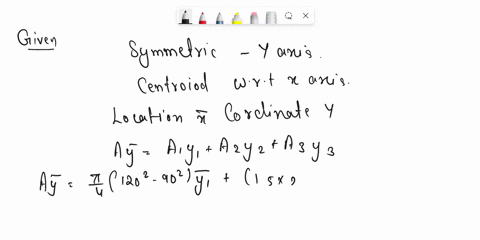 Given
Symmetric - Y axis.
Centroiod w.r.t x axis.
Location x̄ Cordinate Y
Aȳ = A₁y₁ + A₂y₂ + A₃y₃
Aȳ = π/4 (120² - 90²) ȳ₁ + (15x